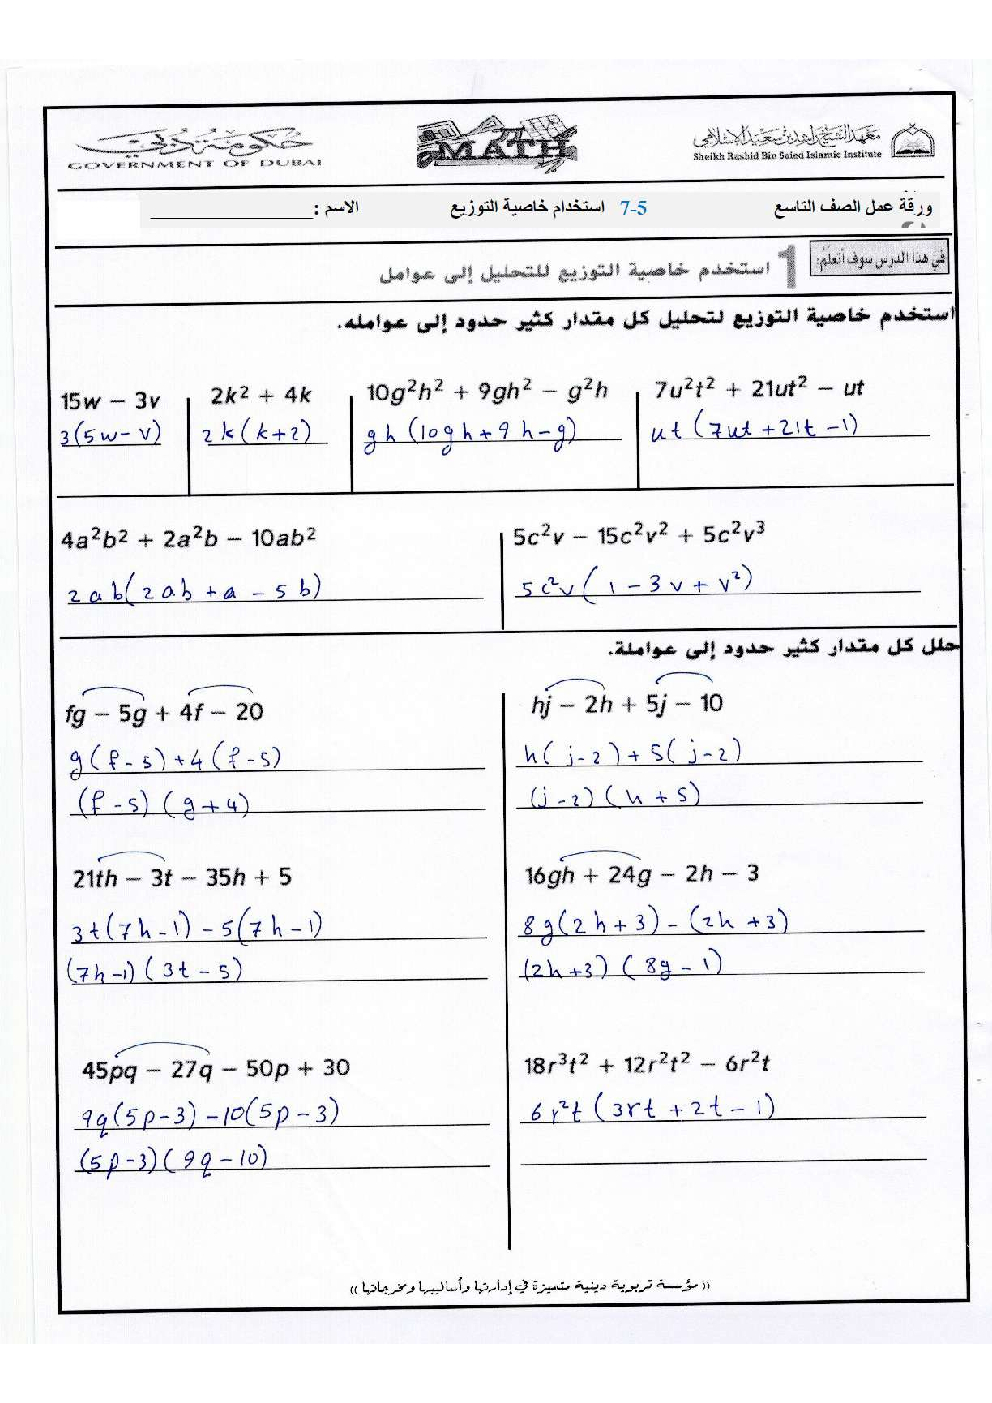 حكومة دبي
GOVERNMENT OF DUBAI
MATH
معهد الشيخ راشد بن سعيد الإسلامي
Sheikh Rashid Bin Saied Islamic Institute
ورقة عمل الصف التاسع 7-5 استخدام خاصية التوزيع الاسم :
في هذا الدرس سوف أتعلم:
1 استخدم خاصية التوزيع للتحليل إلى عوامل
استخدم خاصية التوزيع لتحليل كل مقدار كثير حدود إلى عوامله.
15w − 3v 2k² + 4k 10g²h² + 9gh² − g²h 7u²t² + 21ut² − ut
3(5w−v) 2k(k+2) gh(10gh+9h−g) ut(7ut+21t−1)
4a²b² + 2a²b − 10ab² 5c²v − 15c²v² + 5c²v³
2ab(2ab+a−5b) 5c²v(1−3v+v²)
حلل كل مقدار كثير حدود إلى عواملة.
fg − 5g + 4f − 20 hj − 2h + 5j − 10
g(f−5)+4(f−5) h(j−2)+5(j−2)
(f−5)(g+4) (j−2)(h+5)
21th − 3t − 35h + 5 16gh + 24g − 2h − 3
3t(7h−1)−5(7h−1) 8g(2h+3)−(2h+3)
(7h−1)(3t−5) (2h+3)(8g−1)
45pq − 27q − 50p + 30 18r³t² + 12r²t² − 6r²t
9q(5p−3)−10(5p−3) 6r²t(3rt+2t−1)
(5p−3)(9q−10)
(( مؤسسة تربوية دينية متميزة في إدارتها وأساليبها ومخرجاتها ))